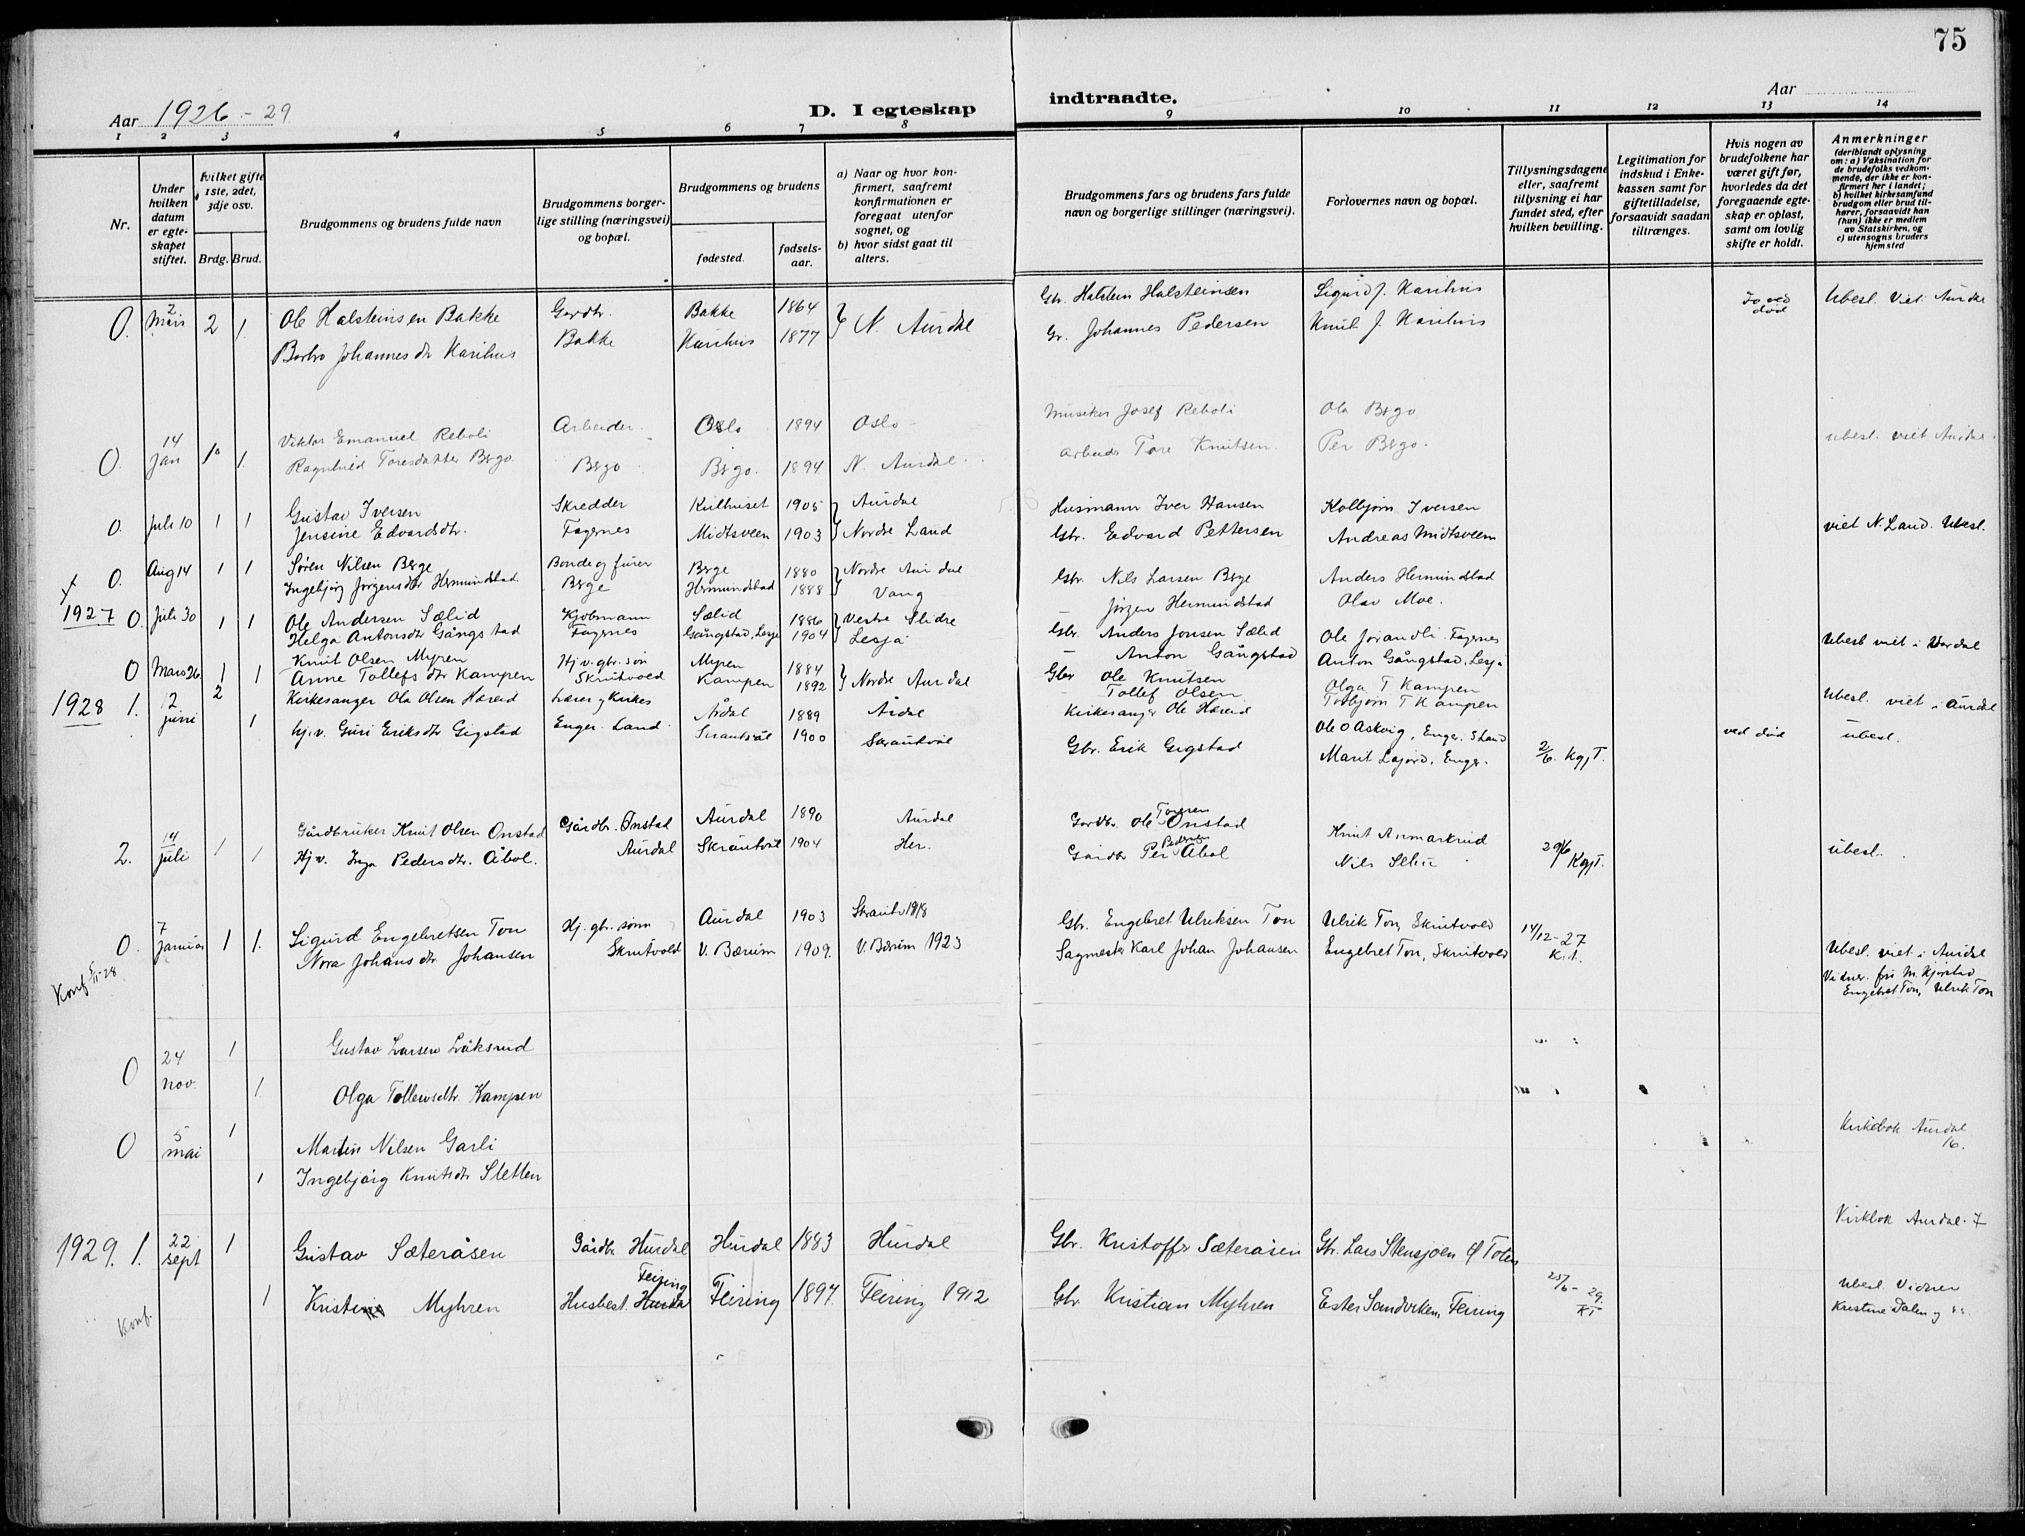 75
Aar 1926-29
D. I egteskap
indtraadte.
Aar
1 2 3 4 5 6 7 8 9 10 11 12 13 14
Nr.
Under hvilken datum er egteskapet stiftet.
Hvilket gifte 1ste, 2det, 3dje osv.
Brdg. Brud.
Brudgommens og brudens fulde navn
Brudgommens borgerlige stilling (næringsvei) og bopæl.
Brudgommens og brudens
fødested.
fødselsaar.
a) Naar og hvor konfirmert, saafremt konfirmationen er foregaat utenfor sognet, og
b) hvor sidst gaat til alters.
Brudgommens fars og brudens fars fulde navn og borgerlige stillinger (næringsvei).
Forlovernes navn og bopæl.
Tillysningsdagene eller, saafremt tillysning ei har fundet sted, efter hvilken bevilling.
Legitimation for indskud i Enkekassen samt for giftetilladelse, forsaavidt saadan tiltrænges.
Hvis nogen av brudefolkene har været gift før, hvorledes da det foregaaende egteskap er opløst, samt om lovlig skifte er holdt.
Anmerkninger
(deriblandt oplysning om: a) Vaksination for de brudefolks vedkommende, der ikke er konfirmert her i landet; b) hvilket kirkesamfund brudgom eller brud tilhører, forsaavidt han (hun) ikke er medlem av Statskirken, og c) utensogns bruders hjemsted
0. 2 Mars 2 1. Ole Halsteinsen Bakke Gardbr. Bakke 1864 } N. Aurdal Gbr. Halstein Halsteinsen Sigurd J. Karihus Ja ved død Ubesl. Viet Aurdal
Barbro Johannesdtr Karihus Bakke Karihus 1877 Gr. Johannes Pedersen Knut J. Karihus
0. 14 Jan 1 1. Viktor Emanuel Reboli Arbeider. Oslo 1894 Oslo Musiker Josef Reboli Ola Bergo ubesl. viet Aurdal.
Ragnhild Toresdatter Bergo Bergo Bergo. 1894 N. Aurdal. Arbeider Tore Knutsen. Per Bergo.
0. Juli 10 1 1 Gustav Iversen Skredder 1905 } Aurdal Husmann Iver Hansen Kolbjørn Iversen viet N. Land. Ubesl.
Jensine Edvardsdtr. Fagernes Midtsveen 1903 Nordre Land Gbr. Edvard Pettersen Andreas Midtsveen
x 0. Aug 14 1 1 Søren Nilsen Berge Bonde og furer Berge 1880 } Nordre Aurdal Gbr. Nils Larsen Berge Anders Hermundstad
Ingebjørg Jørgensdtr Hermundstad. Berge Hermundstad 1888 Vang Jörgen Hermundstad Olav Moe.
1927 0. Juli 30 1 1 Ole Andersen Sælid Kjøbmann Sælid 1886 } Vestre Slidre Gbr. Anders Jonsen Sælid Ole Jørandli. Fagernes Ubesl viet i Vardal
Helga Antonsdtr Gångstad Fagernes Gångstad, Lesja 1904 Lesja — Anton Gångstad Anton Gångstad, Lesja
0 Mars 26 1 1 Knut Olsen Myren Hj v. gbr. søn Myren 1884 } Nordre Aurdal Gbr Ole Knutsen Olga T Kampen Ubesl. viet i Aurdal
Anne Tollefsdtr Kampen Skrutvold Kampen 1892 Tollef Olsen Torbjørn T Kampen
1928 1. 2 juni 2 1 Kirkesanger Ola Olsen Hæreid Lærer og Kirkes Årdal 1889 Årdal Kirkesanger Ole Hæreid Ole O Askvig, Enger. S Land 2/6. KgjT. ved død ubesl.
hj.v. Guri Eriksdtr Gigstad Enger. Land. Skrautvål 1900 Skrautvål Gbr. Erik Gigstad Marit Lajord, Enger.
2. 14 juli 1 1 Gårdbruker Knut Olsen Onstad Gårdbr. Onstad Aurdal 1890 Aurdal Gardbr. Ole Toresen Onstad Knut Anmarkrud 29/6 KgjT. ubesl.
Hj v. Inga Pedersdtr. Åbol. Aurdal Skrautvål 1904 Her. Gårdbr Per Pedersen Abol Nils
0. 7 Januar 1 1. Sigurd Engebretsen Ton Hj. gbr. sønn Aurdal 1903 Skrautv 1918 Gbr. Engebret Ulriksen Ton Ulrik Ton, Skrutvold 14/12-27 K.t. Ubesl. viet i Aurdal
Konf. 5/11-28 Nora Johansdtr Johansen Skrutvold V. Bærum 1909. V. Bærum 1923 Sagmester Karl Johan Johansen Engebret Ton, Skrutvold Vidner. fru M. Kjørstad
Engebret Ton, Ulrik Ton
0 24 nov. 1 Gustav Larsen Låksrud
1 Olga Tollevsdtr. Kampen
0 5 mai 1 Martin Nilsen Garli Kirkebok Aurdal 16.
1 Ingebjørg Knutsdtr Sletten
1929. 1. 22 sept 1 Gustav Sæteråsen Gårdbr Hurdal Hurdal 1883 Hurdal Gbr. Kristoffer Sæteråsen Gbr. Lars Stensjøen Ø Toten Kirkbok Aurdal. 7
Konf. 1 Kristine Myhren Husbest. Hurdal Feiring Feiring 1897 Feiring 1912 Gbr Kristian Myhren Ester Sandviken, Feiring 25/6-29. KT Ubesl Vidner
Kristine Dalen og